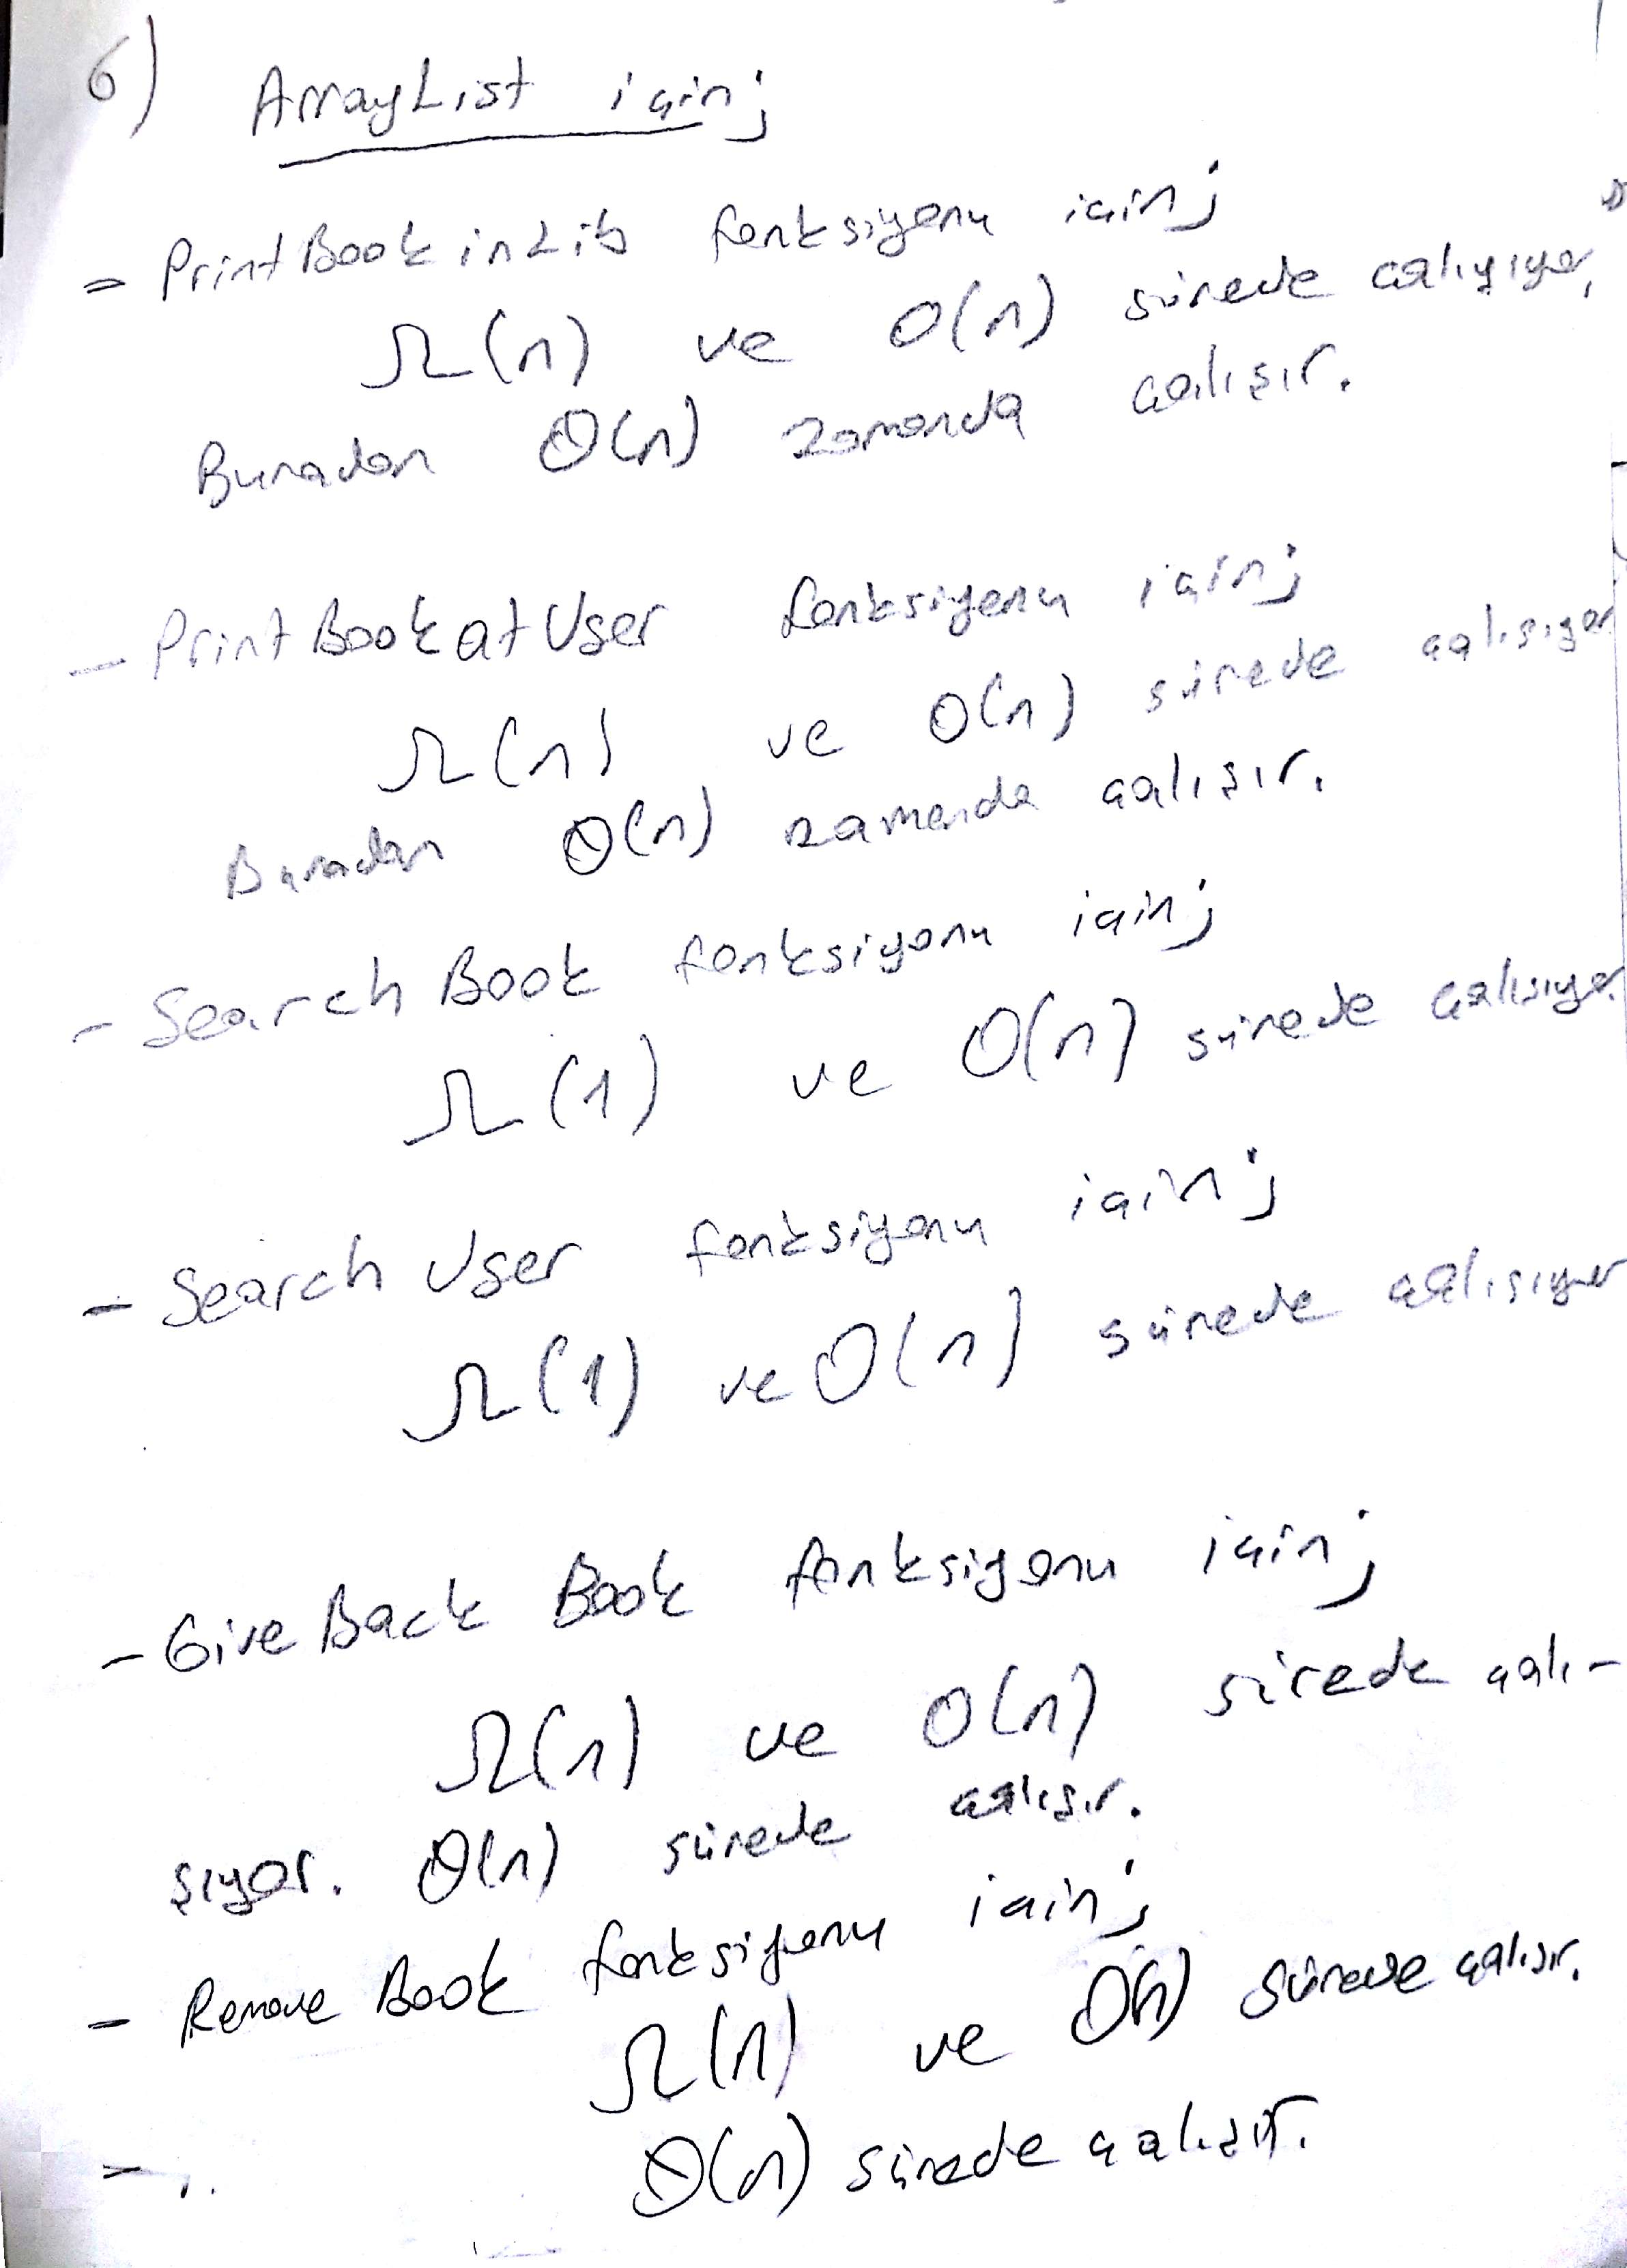 6) ArrayList için;
- PrintBookinLib fonksiyonu için;
Ω(n) ve O(n) sürede çalışıyor,
Buradan Θ(n) zamanda çalışır.
- PrintBookatUser fonksiyonu için;
Ω(n) ve O(n) sürede çalışıyor
Buradan Θ(n) zamanda çalışır.
- Search Book fonksiyonu için;
Ω(1) ve O(n) sürede çalışıyor.
- Search User fonksiyonu için;
Ω(1) ve O(n) sürede çalışıyor
- Give Back Book fonksiyonu için;
Ω(n) ve O(n) sürede çalı-
şıyor. Θ(n) sürede çalışır.
- Remove Book fonksiyonu için;
Ω(n) ve O(n) sürede çalışır.
Θ(n) sürede çalışır.